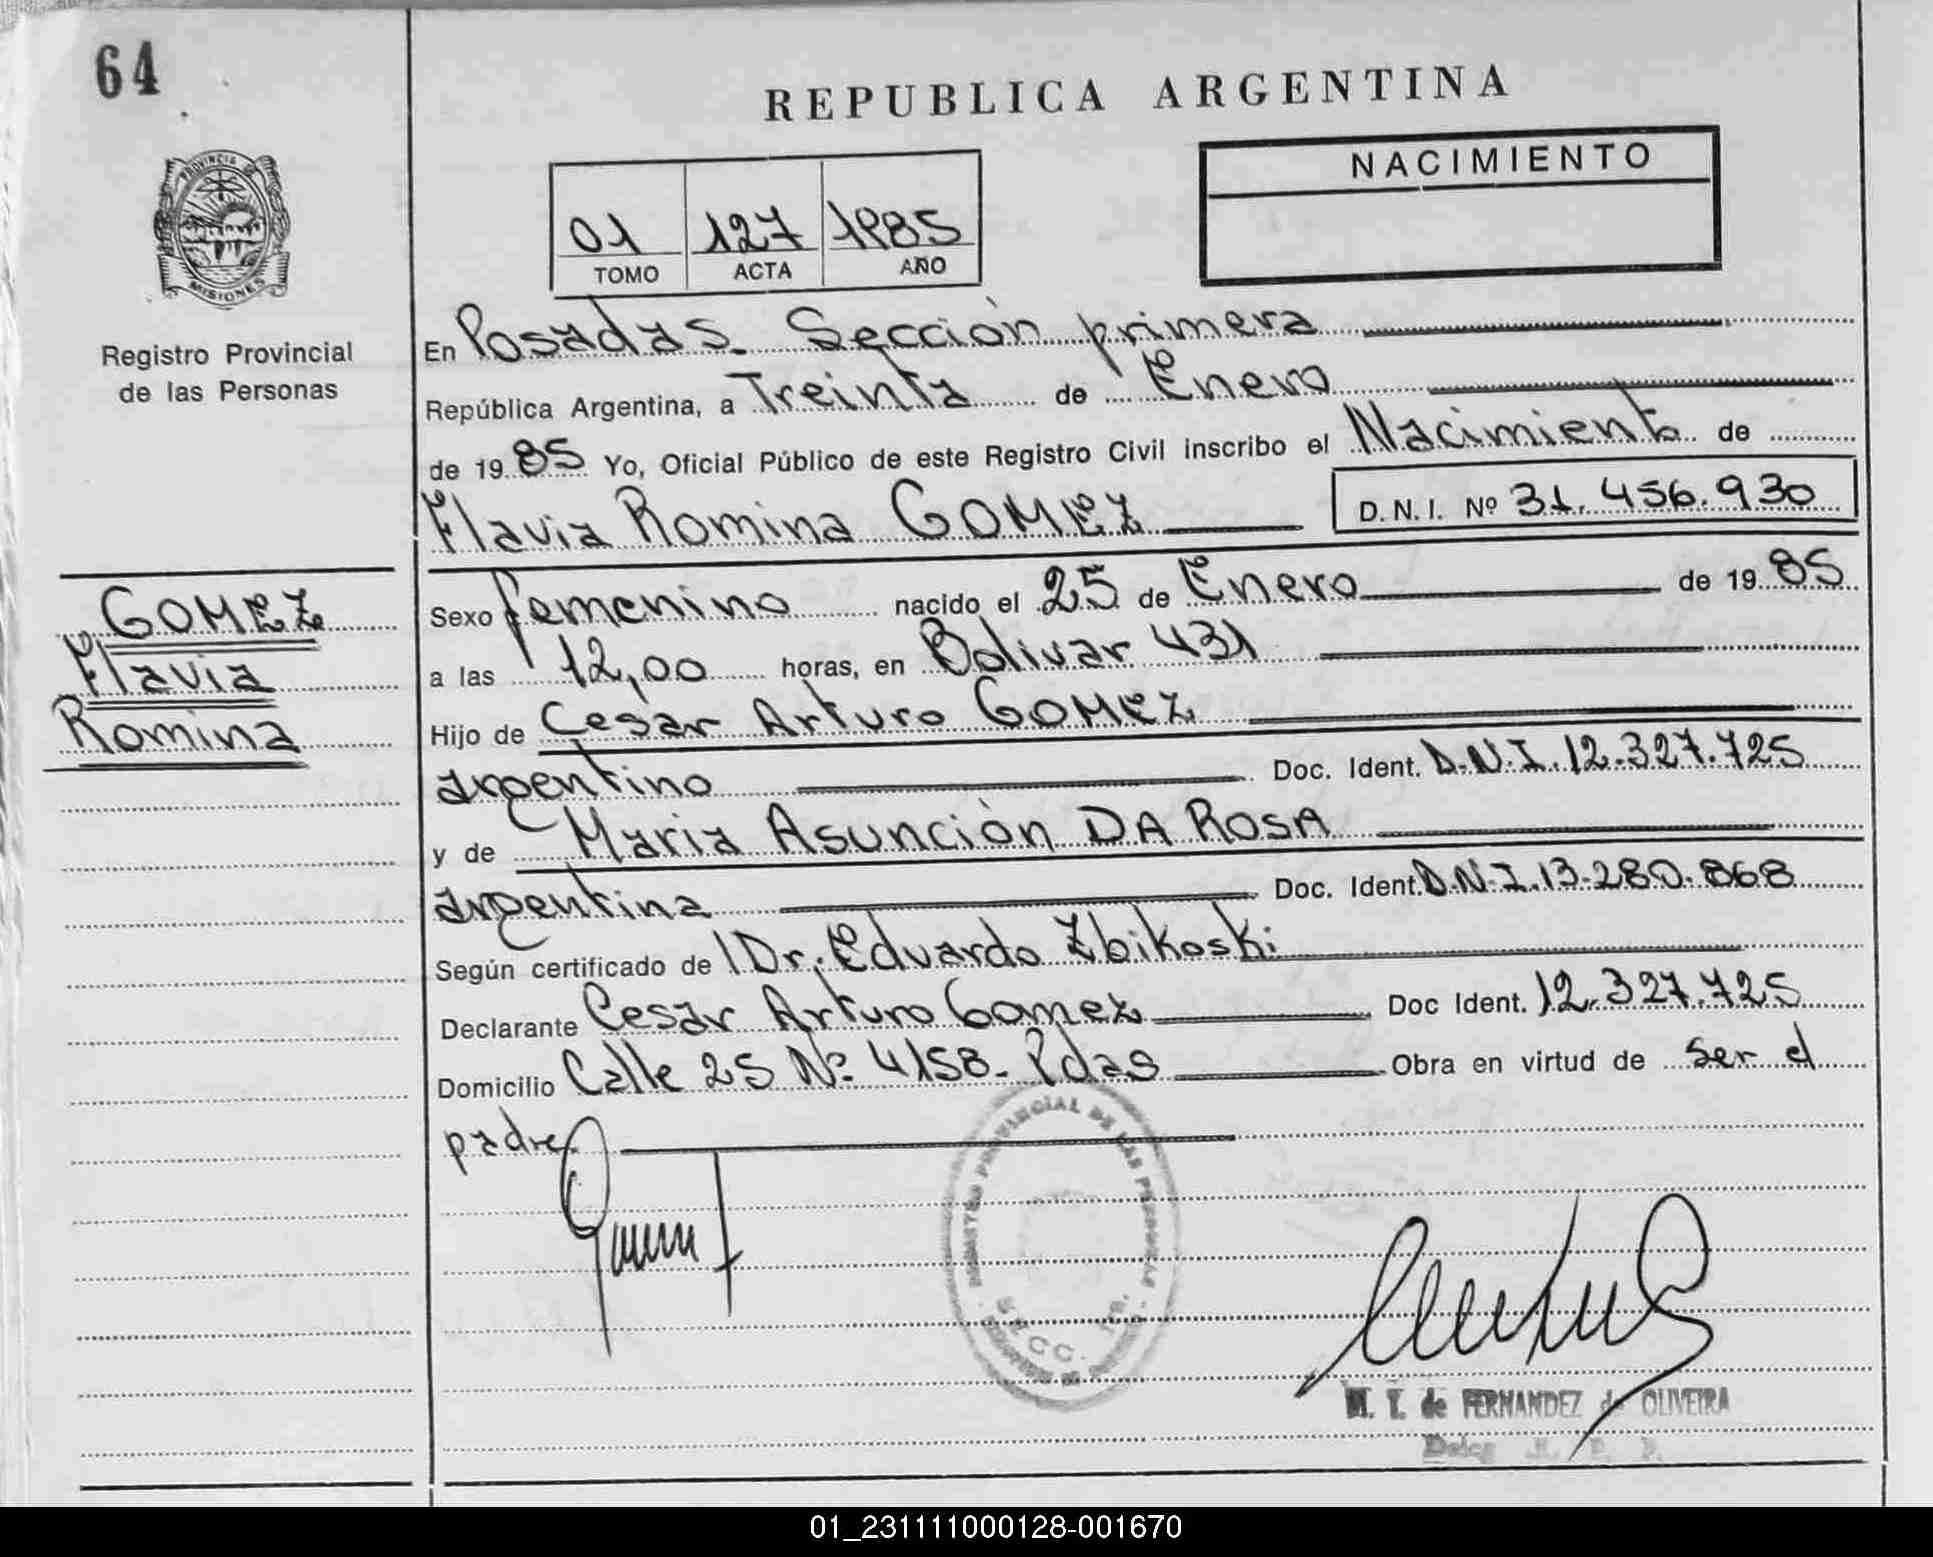 64
REPUBLICA ARGENTINA
PROVINCIA DE
MISIONES
Registro Provincial
de las Personas
01 127 1985
TOMO ACTA AÑO
NACIMIENTO
En Posadas. Sección primera
República Argentina, a Treinta de Enero
de 19 85 Yo, Oficial Público de este Registro Civil inscribo el Nacimiento de
Flavia Romina GOMEZ D.N.I. Nº 31.456.930
GOMEZ
Flavia
Romina
Sexo femenino nacido el 25 de Enero de 19 85
a las 12,00 horas, en Bolivar 431
Hijo de Cesar Arturo GOMEZ
argentino Doc. Ident. D.N.I. 12.327.725
y de Maria Asunción DA ROSA
argentina Doc. Ident. D.N.I. 13.280.868
Según certificado de Dr. Eduardo Zbikoski
Declarante Cesar Arturo Gomez Doc Ident. 12.327.725
Domicilio Calle 25 Nº 4158. Pdas Obra en virtud de ser el
padre.
PROVINCIAL DE LAS PERSONAS
M. T. de FERNANDEZ de OLIVEIRA
01_231111000128-001670